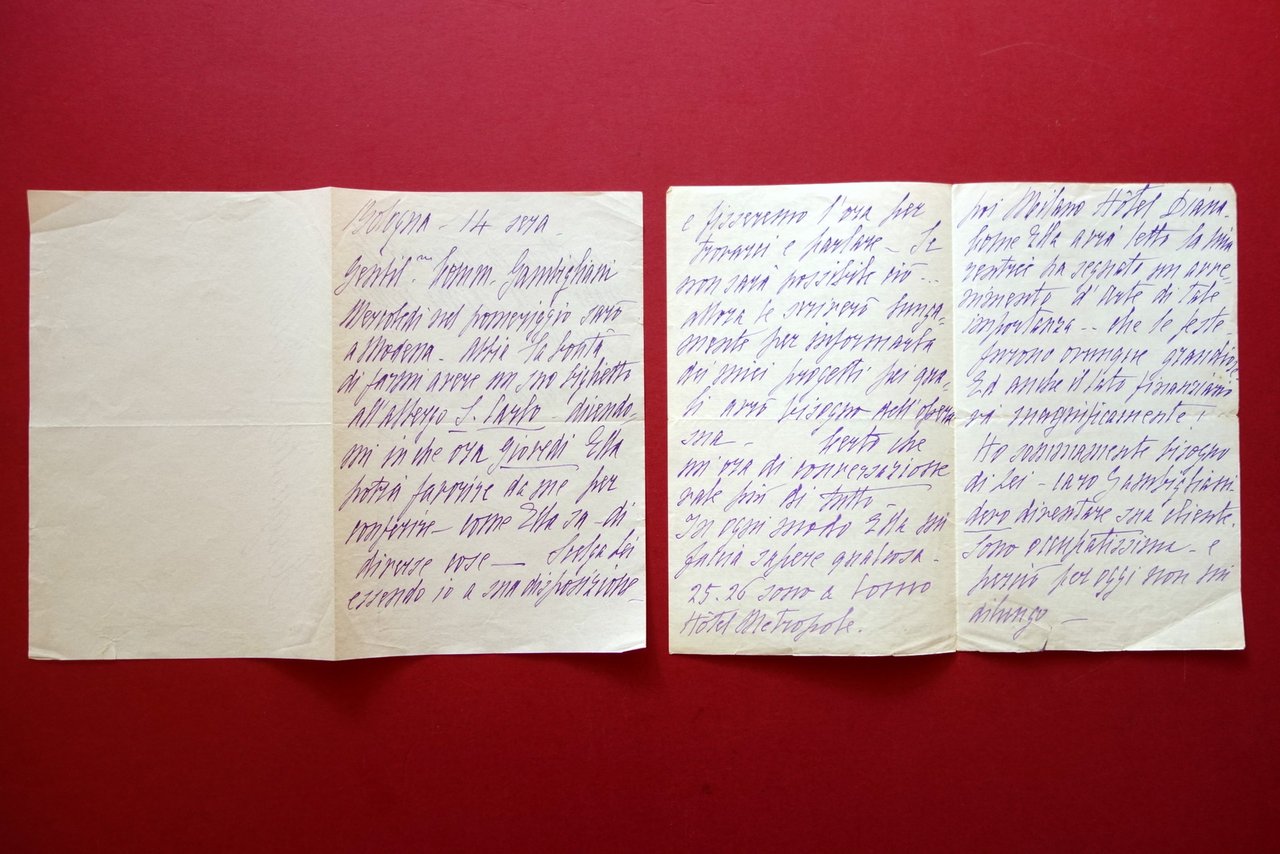 Bologna - 14 sera.
Gentil.mo Comm. Gambigliani
Mercoledì nel pomeriggio sarò
a Modena. Abbia la bontà
di farmi avere un suo biglietto
all'albergo S. Carlo - dicendo-
mi in che ora giovedì Ella
potrà favorire da me per
conferire - come Ella sa - di
diverse cose — Scelga Lei
essendo io a sua disposizione -
e fisseremo l'ora per
trovarci e parlare - Se
non sarà possibile ciò...
allora le scriverò lunga-
mente per informarla
dei miei progetti pei qua-
li avrò bisogno dell'opera
sua - Certo che
un'ora di conversazione
vale più di tutto
In ogni modo Ella mi
faccia sapere qualcosa -
25.26 sono a Como
Hôtel Metropole.
poi Milano Hôtel Diana.
Come Ella avrà letto la mia
rentrée ha segnato un avve-
nimento d'Arte di tale
importanza.. che le feste
furono ovunque grandiose.
Ed anche il lato finanziario
va magnificamente!
Ho sommamente bisogno
di lei - caro Gambigliani.
devo diventare sua cliente.
Sono occupatissima - e
perciò per oggi non mi
dilungo —